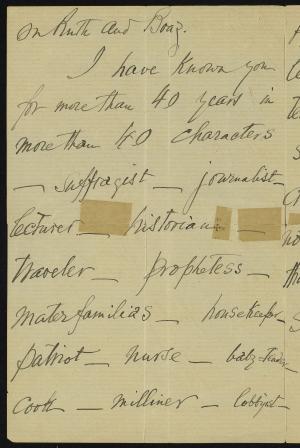 on Ruth and Boaz.
I have known you
for more than 40 years in
more than 40 characters
— suffragist — journalist —
lecturer — historian —
traveler — prophetess —
materfamilias — housekeeper —
patriot — nurse — baby-tender
cook — milliner — lobbyist —